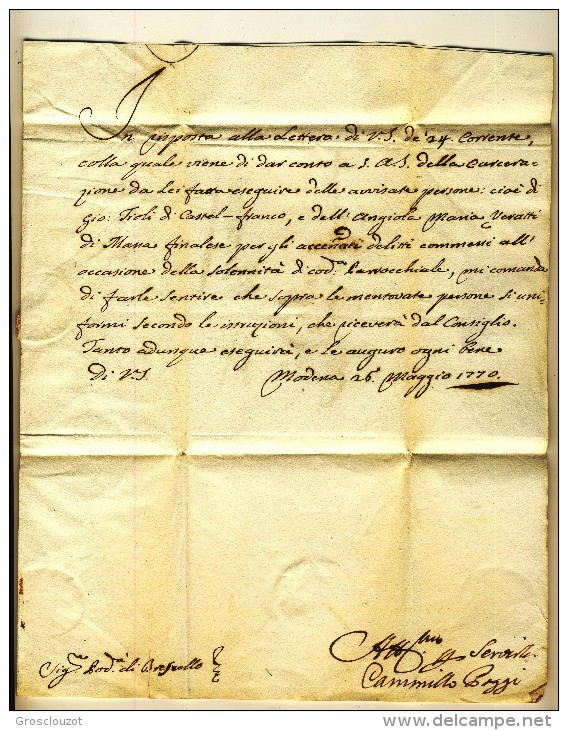 In risposta alla Lettera di V.S. de' 24 Corrente,
colla quale viene di dar conto a S.A.S. della Carcera-
zione da Lei fatta eseguire delle avvisate persone: cioè di
Gio: Tioli di Castel-franco, e dell'Angiola Maria Veratti
di Massa finalese per gli accennati delitti commessi all'
occasione della solennità di cod.a Parrocchiale, mi comanda
di farle sentire che sopra le mentovate persone si uni-
formi secondo le istruzioni, che riceverà dal Consiglio.
Tanto adunque eseguirà, e le auguro ogni bene
Di V.S. Modena 26 Maggio 1770.
Aff.mo per Servirla
Sig.r Pod.à di Brescello
Cammillo Poggi
© Grosclouzot
delcampe.net